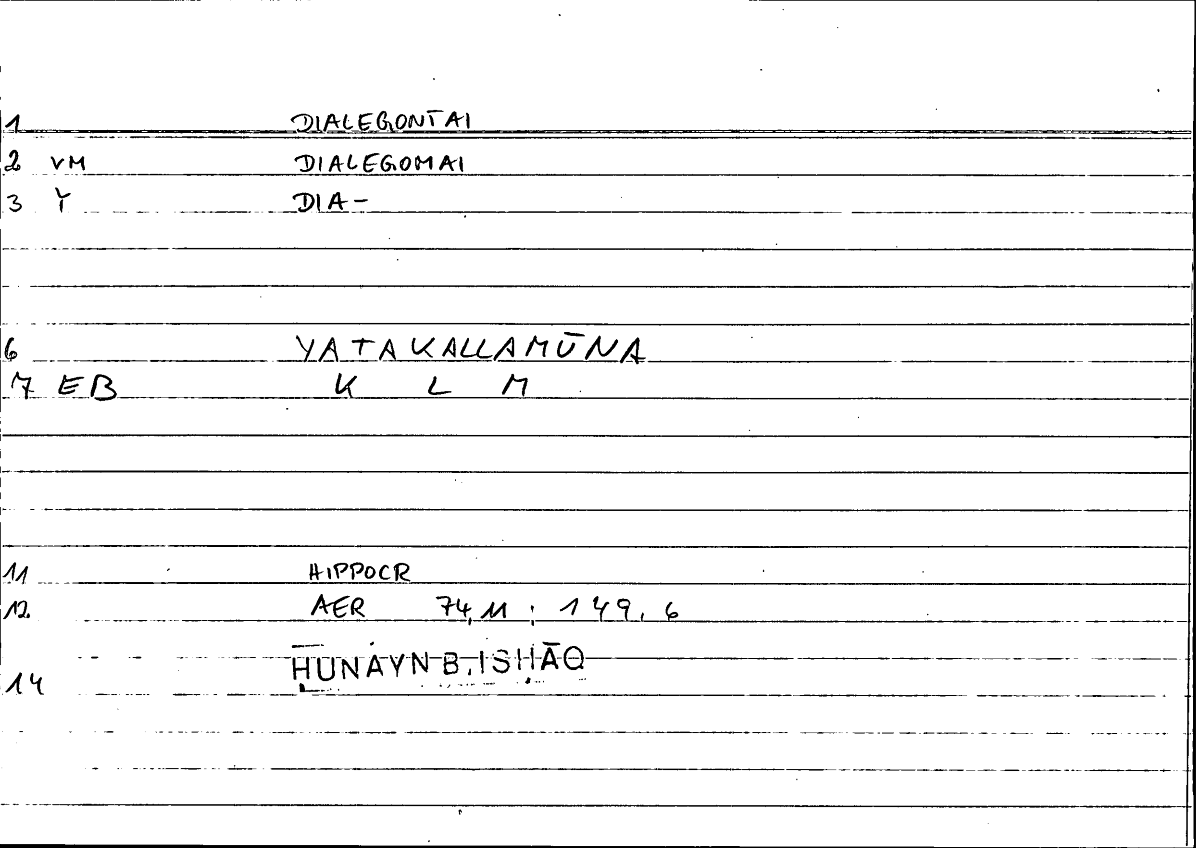 1 DIALEGONTAI
2 VM DIALEGOMAI
3 Y DIA-
6 YATAKALLAMŪNA
7 EB K L M
11 HIPPOCR
12 AER 74,11 ; 149,6
14 ḤUNAYN B. ISḤĀQ